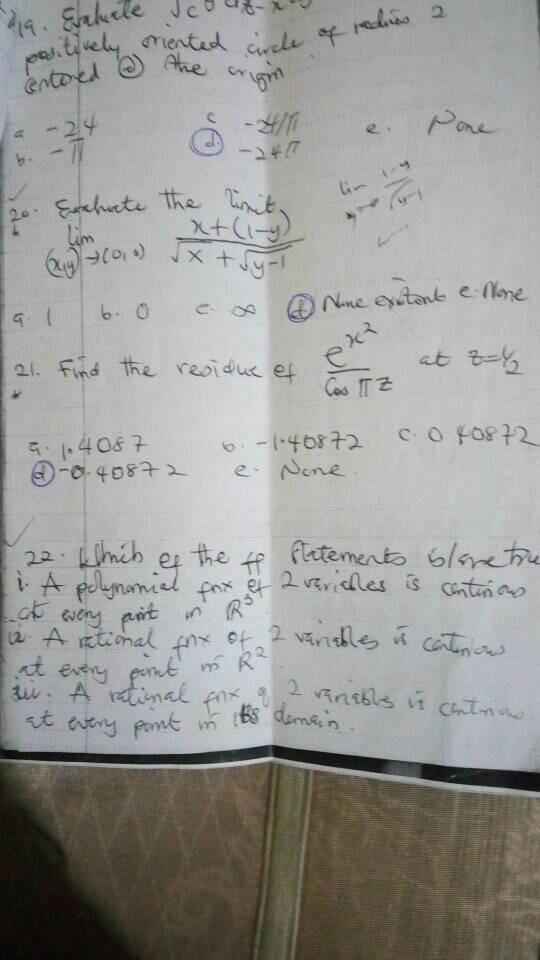 19. Evaluate ∫c
positively oriented circle of radius 2
centered @ the origin
a -24 c -24/π e. None
b. -π d. -24π
20. Evaluate the limit
lim x+(1-y)
(x,y)→(0,0) √x + √y-1
lim 1-y
√y-1
a. 1 b. 0 c. ∞ d None existent e. None
21. Find the residue of e^x² at z=1/2
Cos πz
a. 1.4087 b. -1.40872 c. 0.40872
d -0.40872 e. None
22. Which of the ff statements is/are true
i. A polynomial fnx of 2 variables is continuous
at every point in R³
ii. A rational fnx of 2 variables is continuous
at every point in R².
iii. A rational fnx of 2 variables is continuous
at every point in its domain.